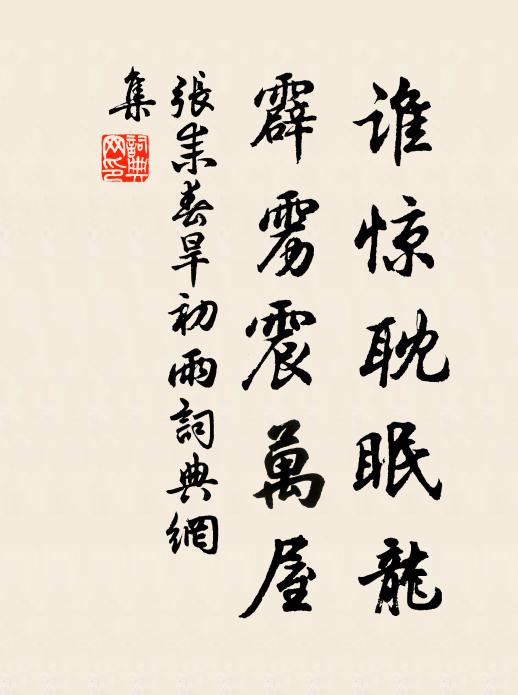 谁惊耽眠龍
霹雳震萬屋
張耒春旱初雨詞典網
集
詞典网印